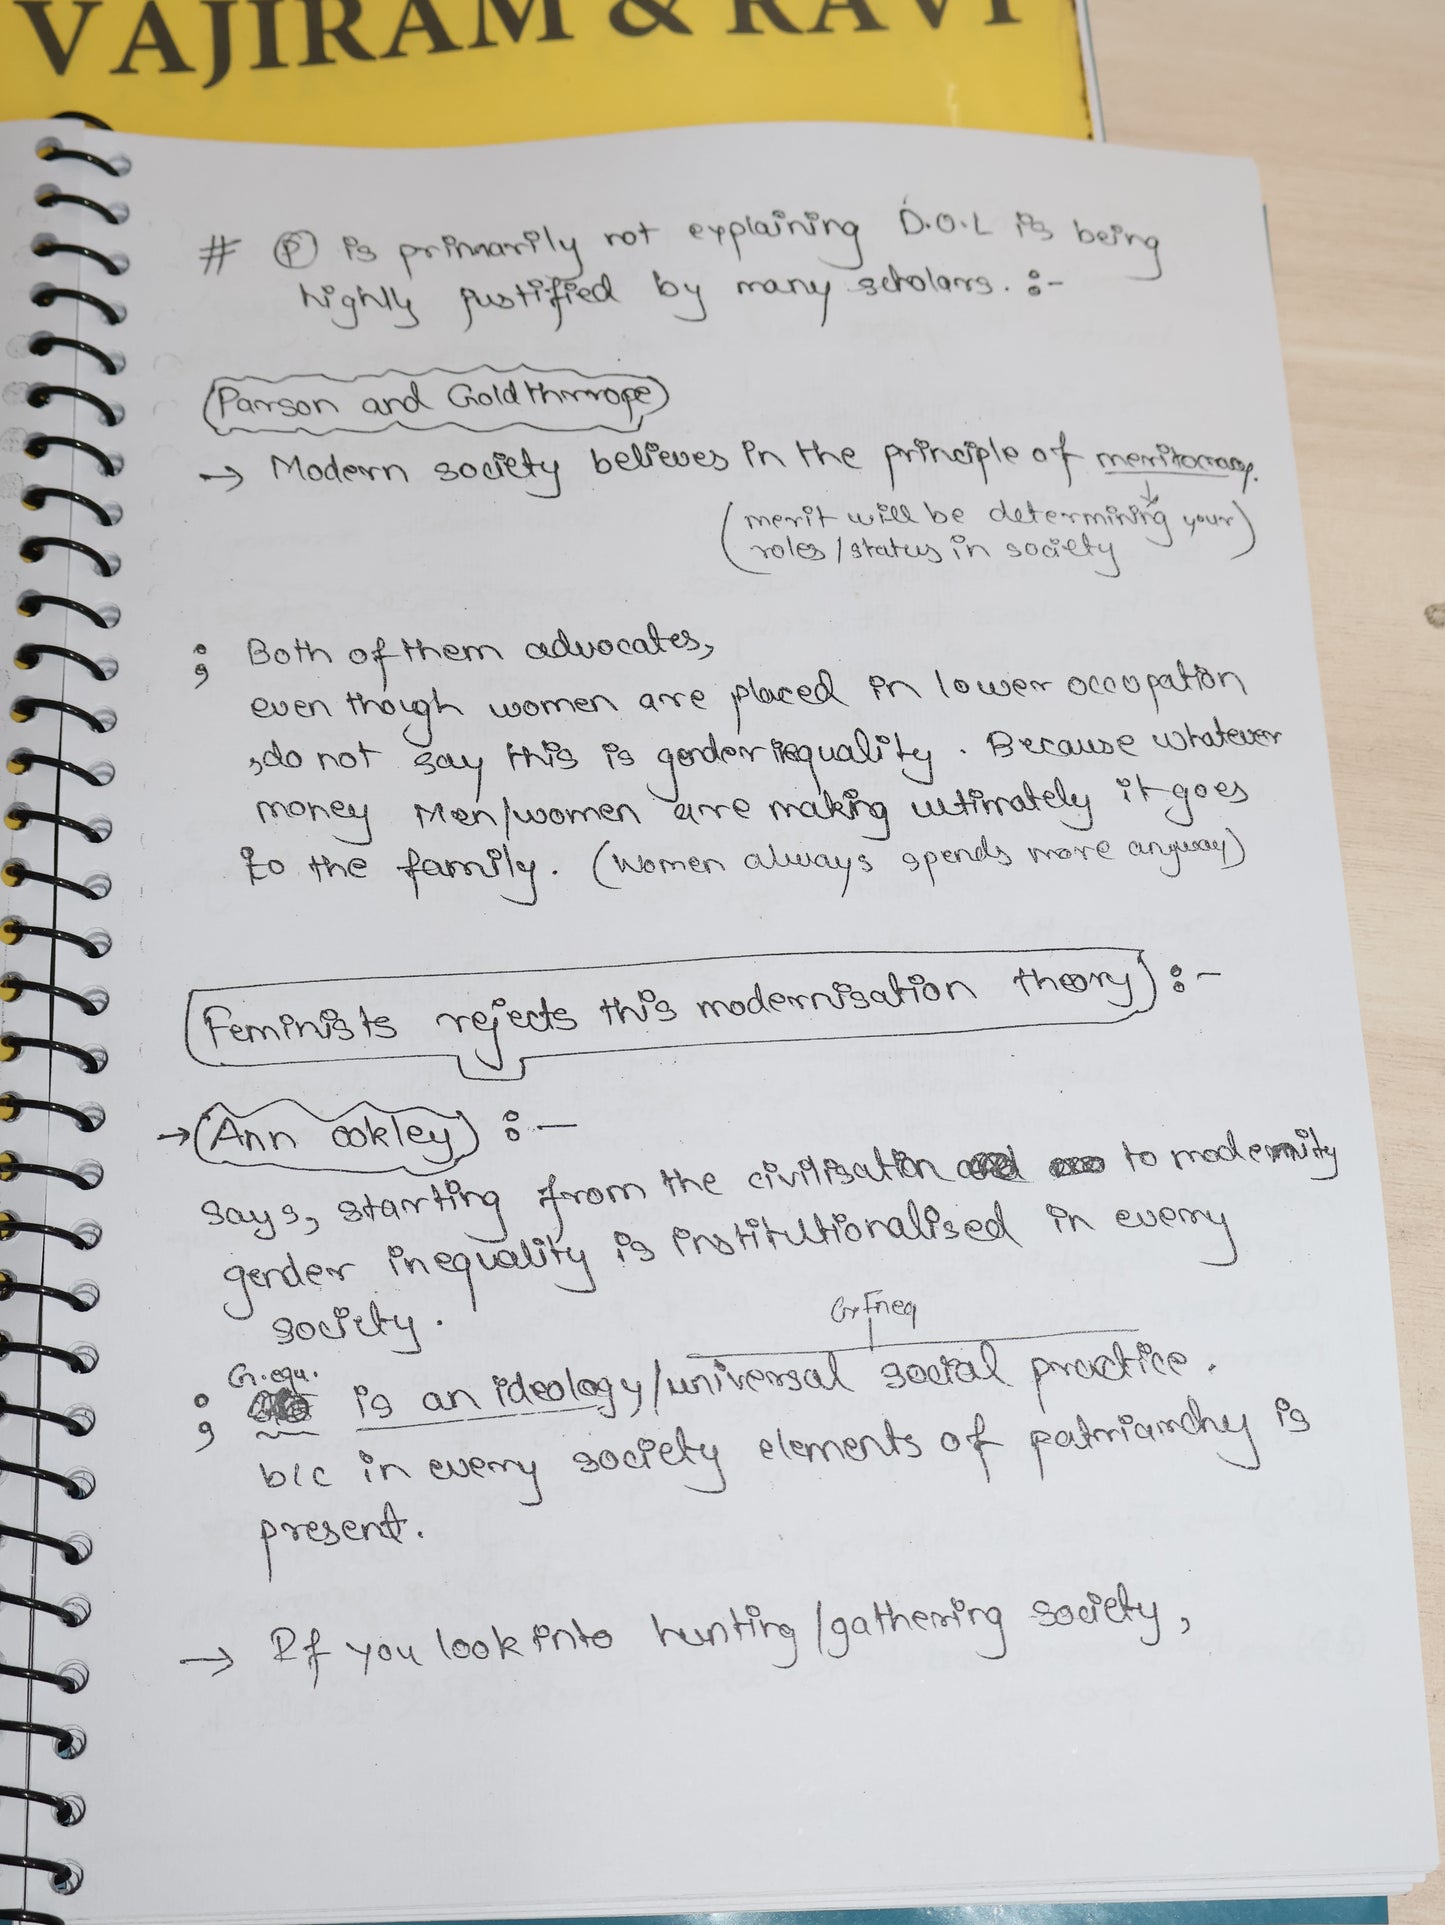 VAJIRAM & RAVI
# Ⓟ is primarily not explaining D.O.L is being
highly justified by many scholars. :-
Parson and Goldthrrope
→ Modern society believes in the principle of meritocracy.
(merit will be determining your
roles/status in society)
; Both of them advocates,
even though women are placed in lower occupation
,do not say this is gender inequality. Because whatever
money Men/women are making ultimately it goes
to the family. (Women always spends more anyway)
Feminists rejects this modernisation theory :-
→ Ann ookley :-
says, starting from the civilisation to modernity
gender inequality is institutionalised in every
society.
G.Ineq
G.equ.
; is an ideology/universal social practice.
b/c in every society elements of patriarchy is
present.
→ If you look into hunting/gathering society,